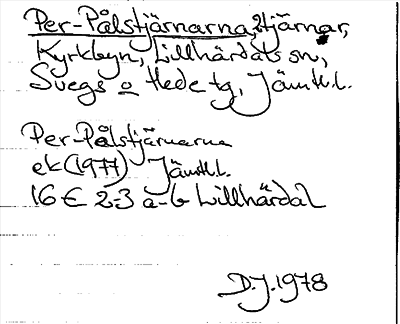 Per-Pålstjärnarna, 2 tjärnar,
Kyrkbyn, Lillhärdals sn,
Svegs o Hede tg, Jämtl. l.
Per-Pålstjärnarna
ek (1977) Jämtl. l.
16 E 2-3 a-b Lillhärdal
D.J. 1978